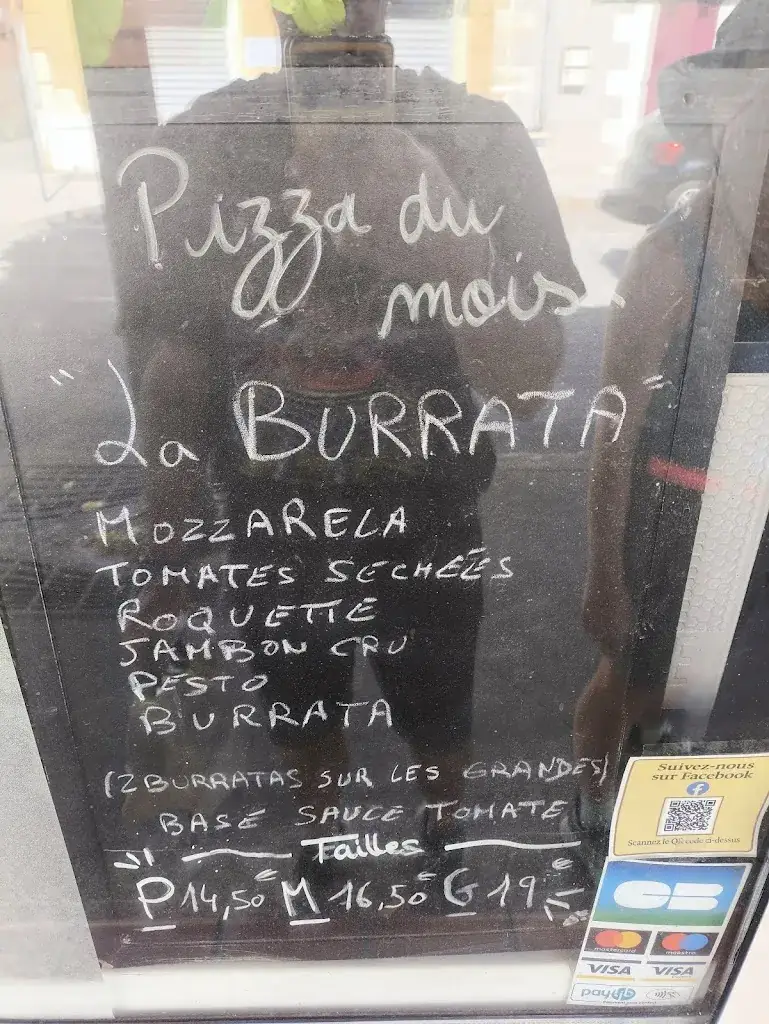 Pizza du
mois
"La BURRATA"
MOZZARELA
TOMATES SECHÉES
ROQUETTE
JAMBON CRU
PESTO
BURRATA
(2 BURRATAS SUR LES GRANDES)
BASE SAUCE TOMATE
Tailles
P 14,50€ M 16,50€ G 19€
Suivez-nous
sur Facebook
Scannez le QR code ci-dessus
CB
mastercard maestro
VISA VISA
paylib